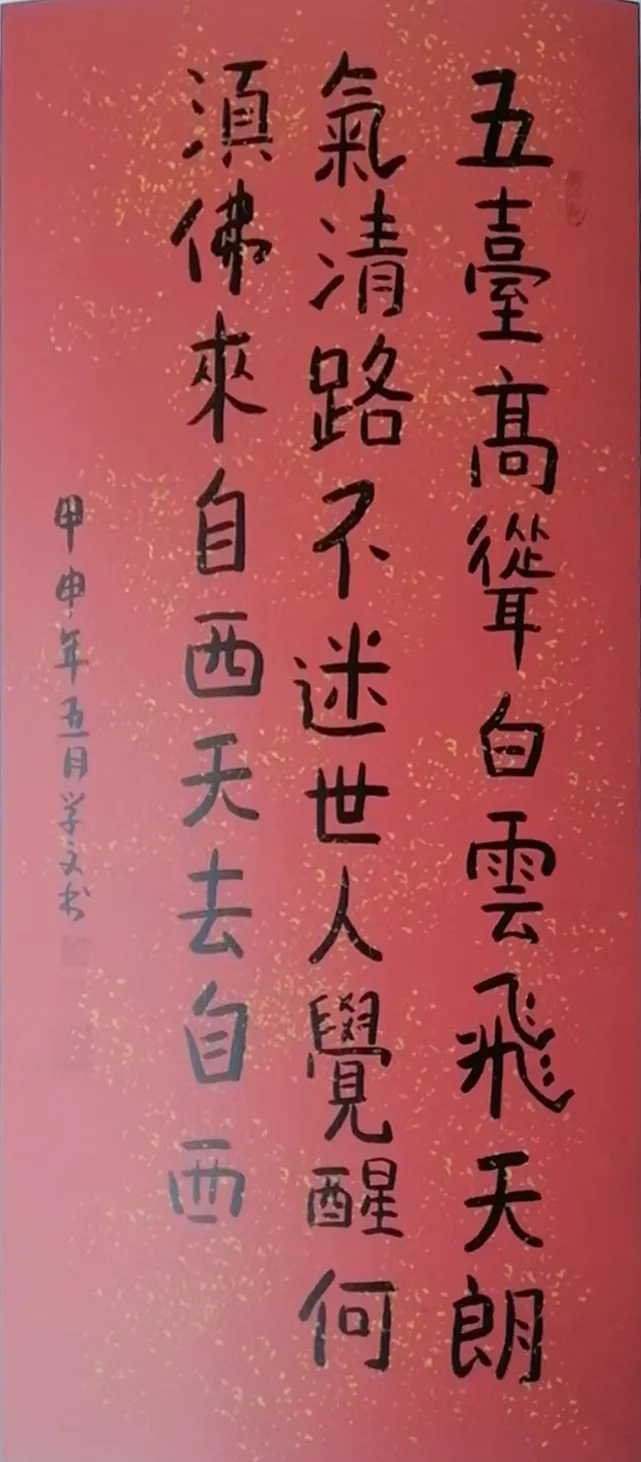 五臺高聳白雲飛天朗
氣清路不迷世人覺醒何
須佛來自西天去自西
甲申年五月学文书